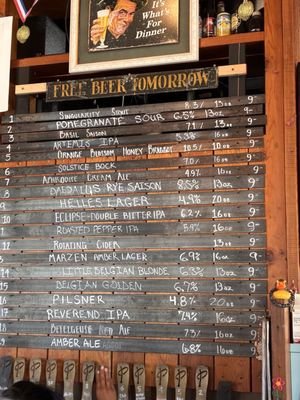 It's
What's
For
Dinner
FREE BEER TOMORROW
1 SINGULARITY STOUT 8.3/ 13oz 9-
2 POMEGRANATE SOUR 6.5% 13oz 9-
3 BASIL SAISON 7.1 13oz 9-
4 ARTEMIS IPA 5.38 16oz 9-
5 ORANGE BLOSSOM HONEY BRAGGOT 10.5/ 10oz 9-
6 SOLSTICE BOCK 7.0% 16oz 9-
7 APHRODITE CREAM ALE 4.9% 16oz 9-
8 DAEDALUS RYE SAISON 8.5% 13oz 9-
9 HELLES LAGER 4.9% 20oz 9-
10 ECLIPSE-DOUBLE BITTER IPA 6.2% 16oz 9-
ROASTED PEPPER IPA 5.9% 16oz 9-
12 ROTATING CIDER 13oz 9-
3 MARZEN AMBER LAGER 6.9% 16oz 9-
14 LITTLE BELGIAN BLONDE 6.3% 13oz 9-
15 BELGIAN GOLDEN 6.7% 13oz 9-
16 PILSNER 4.8% 20oz 9-
17 REVEREND IPA 7.4% 16oz 9-
18 BETELGEUSE RED ALE 7.3/ 16oz 9-
19 AMBER ALE 6.8% 16oz 9-